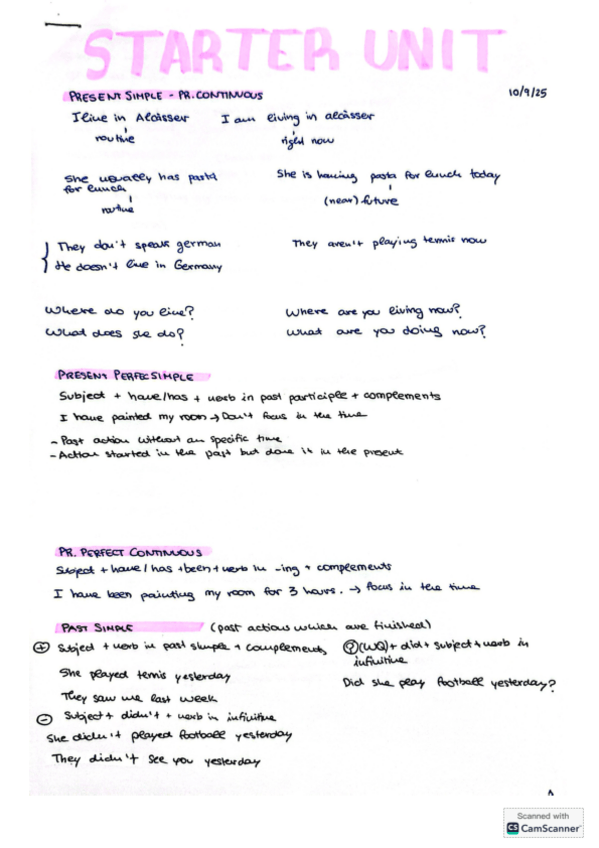 STARTER UNIT
PRESENT SIMPLE - PR. CONTINUOUS
10/9/25
I live in Alcàsser
I am living in alcàsser
routine
right now
She usually has pasta for lunch
She is having pasta for lunch today
routine
(near) future
They don't speak german
They aren't playing tennis now
He doesn't live in Germany
Where do you live?
Where are you living now?
What does she do?
What are you doing now?
PRESENT PERFEC SIMPLE
Subject + have/has + verb in past participle + complements
I have painted my room → Don't focus in the time
- Past action without an specific time
- Action started in the past but done it in the present
PR. PERFECT CONTINUOUS
Subject + have/has + been + verb in -ing + complements
I have been painting my room for 3 hours. → focus in the time
PAST SIMPLE (past actions which are finished)
+ Subject + verb in past simple + complements
? (WQ) + did + subject + verb in infinitive
She played tennis yesterday
Did she play football yesterday?
They saw me last week
- Subject + didn't + verb in infinitive
She didn't played football yesterday
They didn't see you yesterday
Scanned with
CS CamScanner